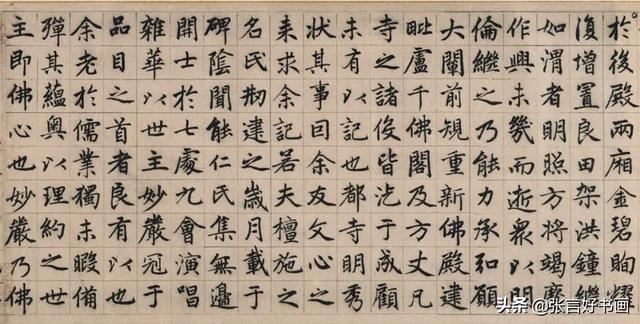 於後殿兩廂金碧眴耀
復增置良田架洪鐘繼
如渭者明照方將竭蹷
作興未幾而逝眾以明
倫繼之乃能力承弘願
大闡前規重新佛殿建
毗盧千佛閣及方丈凡
寺之諸役皆汔于成顧
未有以記也都寺明秀
狀其事囙余友文心之
来求余記若夫檀施之
名氏刱建之歲月載于
碑陰聞能仁氏集無邊
開士於七處九會演唱
雜華以世主妙嚴冠于
品目之首者良有以也
余老於儒業獨未暇備
殫其蘊奧以理約之世
主即佛心也妙嚴乃佛
头条@张言好书画